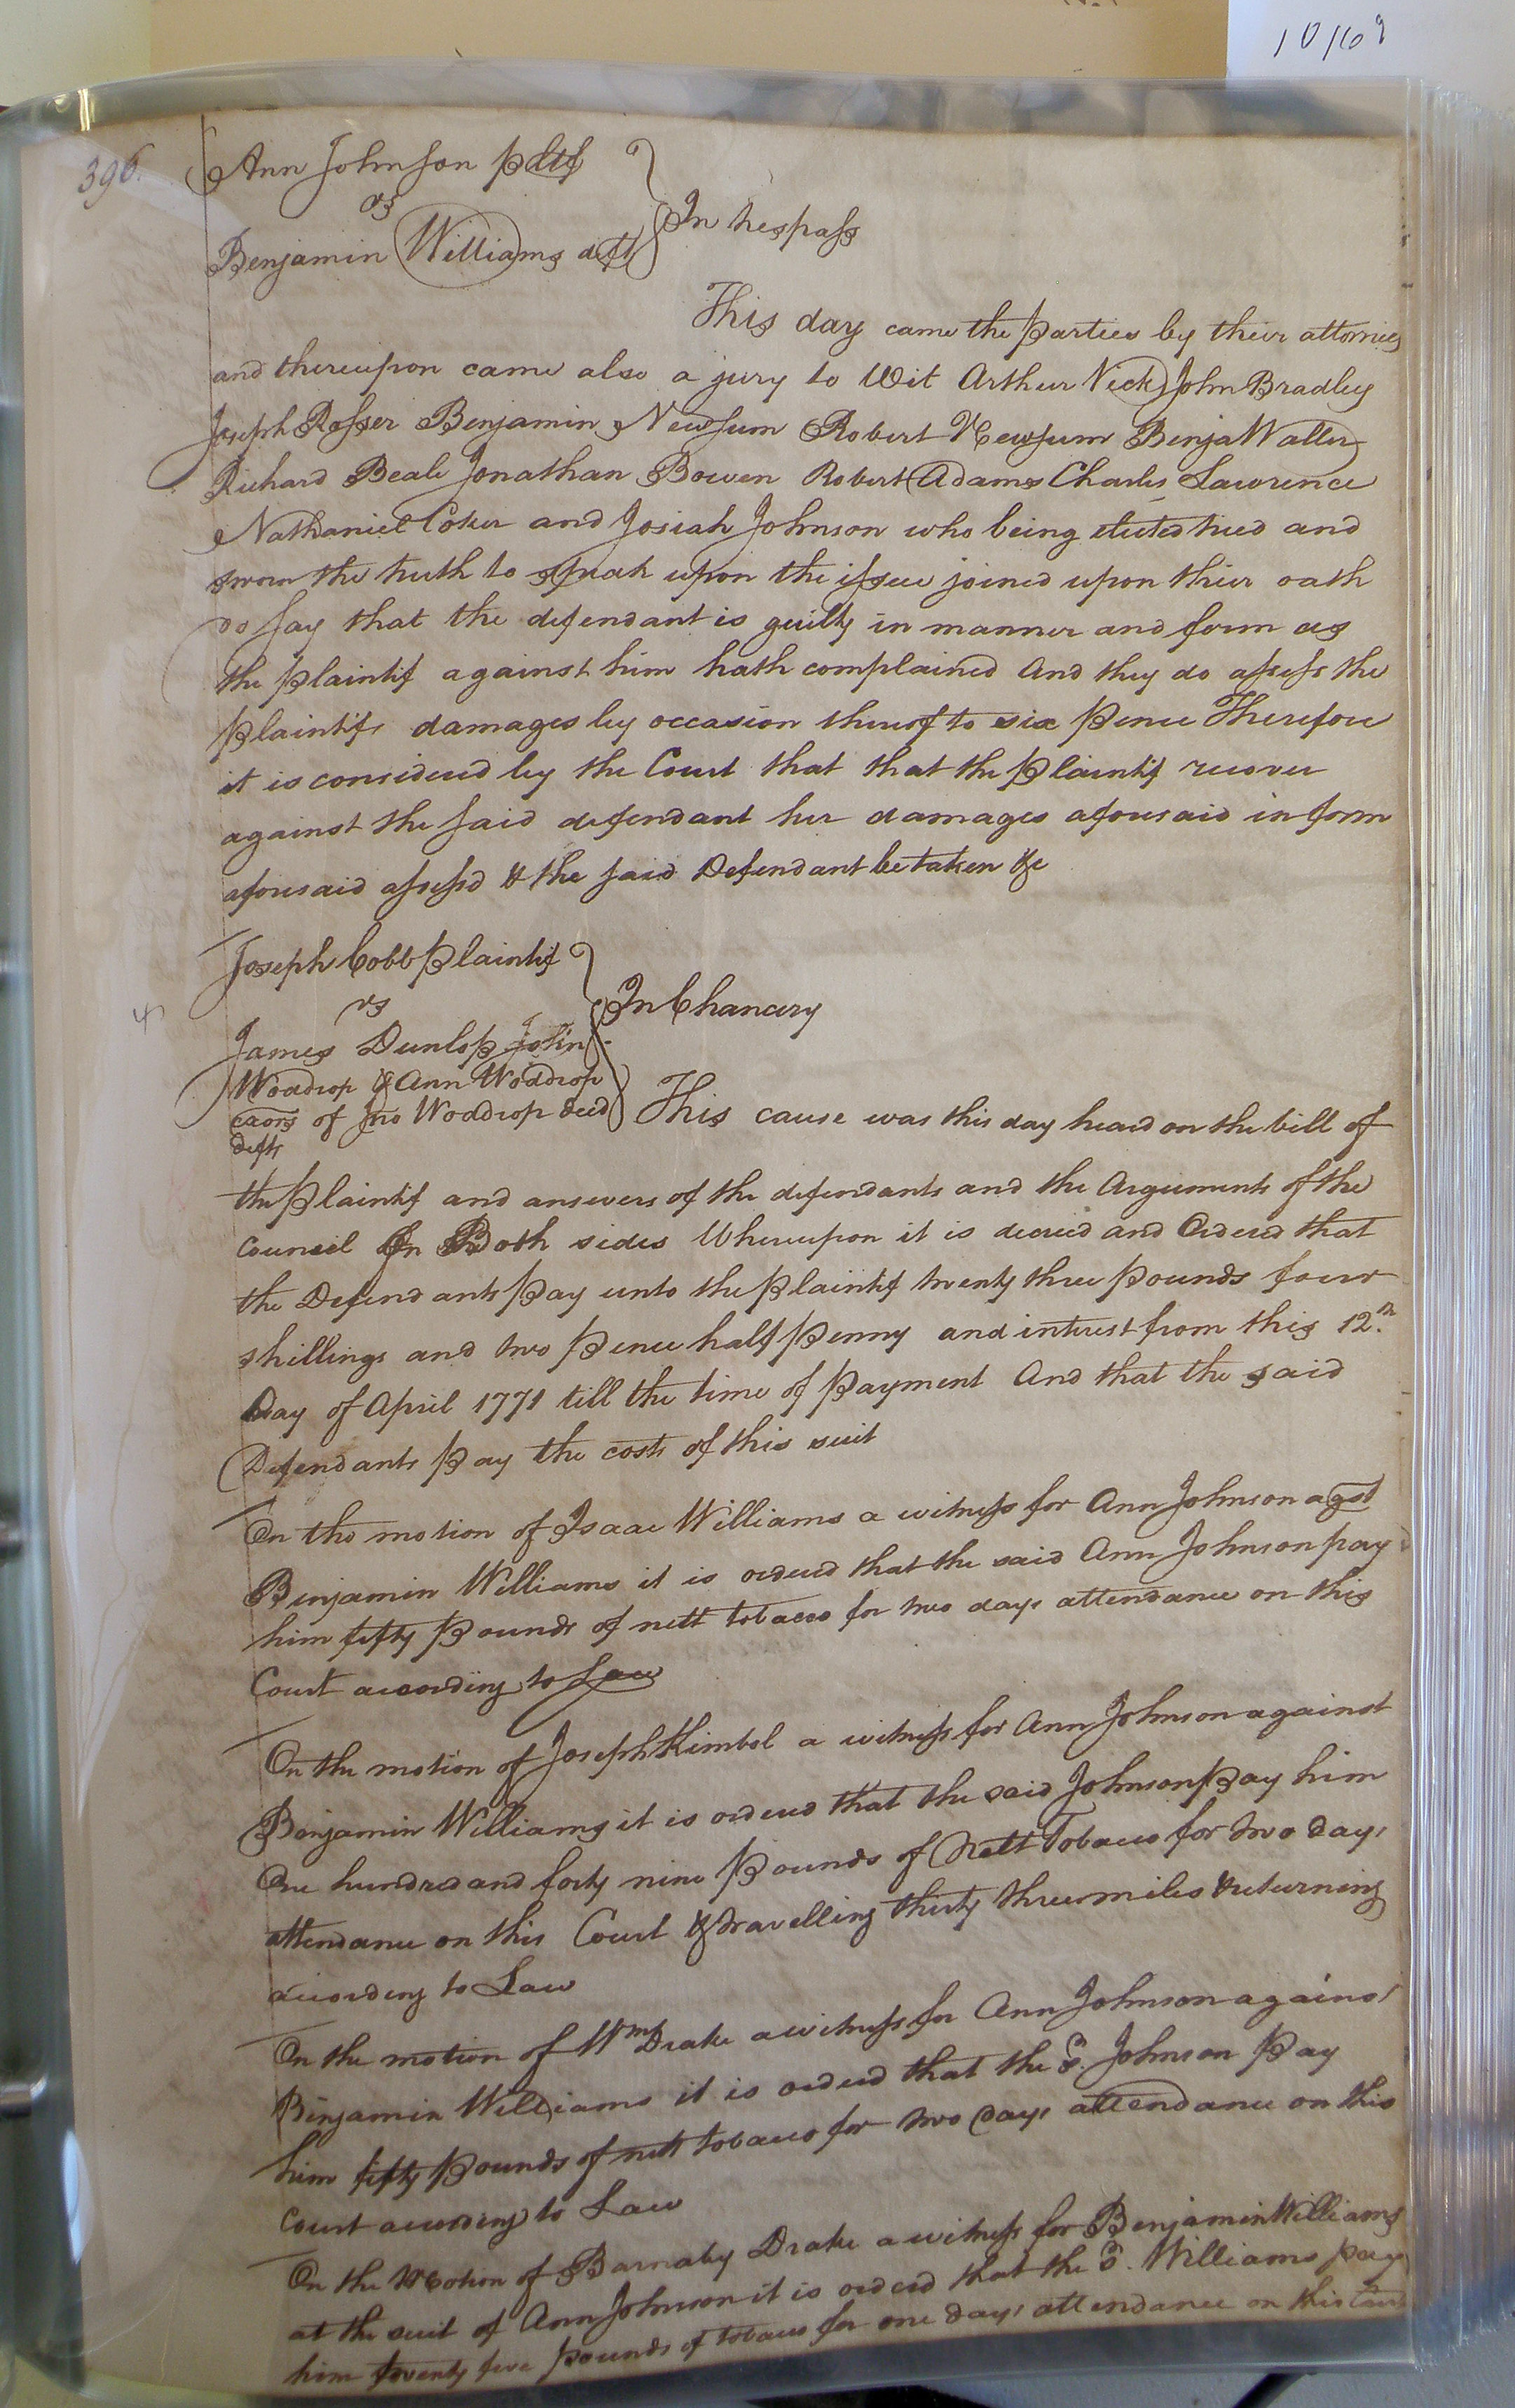 10169
396.
Ann Johnson pltf
vs
Benjamin Williams deft
In trespass
This day came the parties by their attornies
and thereupon came also a jury to Wit Arthur Vick John Bradley
Joseph Rosser Benjamin Newsum Robert Newsum Benja Waller
Richard Beale Jonathan Bowen Robert Adams Charles Lawrence
Nathaniel Coker and Josiah Johnson who being elected tried and
sworn the truth to speak upon the issue joined upon their oath
do say that the defendant is guilty in manner and form as
the plaintif against him hath complained and they do assess the
plaintifs damages by occasion thereof to six pence Therefore
it is considered by the Court that that the plaintif recover
against the said defendant her damages aforesaid in form
aforesaid assessd & the said Defendant be taken &c
Joseph Cobb Plaintif
vs
James Dunlop John
Woddrop & Ann Woddrop
exors of Jno Woddrop decd
defts
In Chancery
This cause was this day heard on the bill of
the Plaintif and answers of the defendants and the Arguments of the
Council On Both sides Whereupon it is decreed and Ordered that
the Defendants pay unto the Plaintif twenty three pounds four
shillings and two pence half penny and interest from this 12th
Day of April 1771 till the time of payment And that the said
Defendants pay the costs of this suit
On the motion of Isaac Williams a witness for Ann Johnson agst
Benjamin Williams it is ordered that the said Ann Johnson pay
him fifty pounds of nett tobacco for two days attendance on this
Court according to Law
On the motion of Joseph Kimbol a witness for Ann Johnson against
Benjamin Williams it is ordered that the said Johnson pay him
One hundred and forty nine pounds of Nett Tobacco for two days
attendance on this Court & travelling thirty three miles & returning
according to Law
On the motion of Wm Drake a witness for Ann Johnson against
Benjamin Williams it is ordered that the sd. Johnson pay
him fifty pounds of nett tobacco for two days attendance on this
Court according to Law
On the Motion of Barnaby Drake a witness for Benjamin Williams
at the suit of Ann Johnson it is ordered that the sd. Williams pay
him twenty five pounds of tobacco for one days attendance on this Court